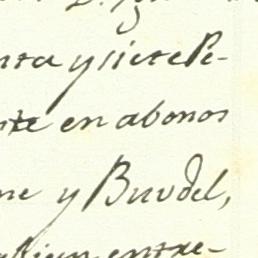 nta y siete Pe-
nte en abonos
ne y Burdel,
entre-